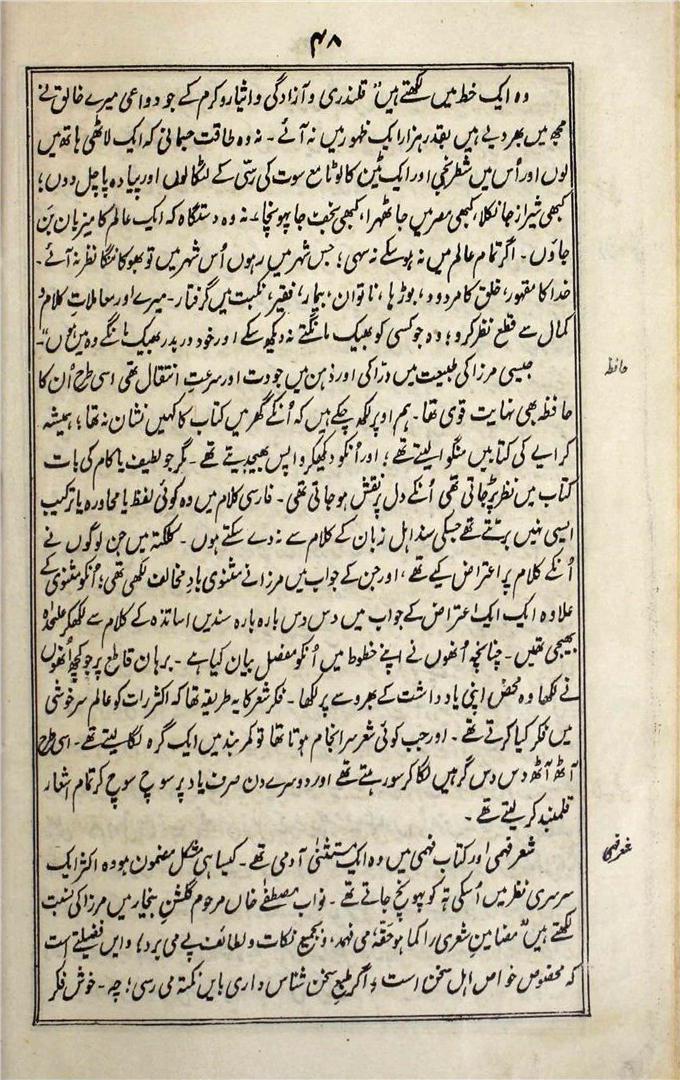 ۴۸
وہ ایک خط میں لکھتے ہیں "قلندری و آزادگی و ایثار و کرم کے جو دواعی میرے خالق نے
مجھ میں بھر دیے ہیں بقدر ہزار ایک ظہور میں نہ آئے۔ نہ وہ طاقت جسمانی کہ ایک لاٹھی ہاتھ میں
لوں اور اُس میں شطرنجی اور ایک ٹین کا لوٹا مع سوت کی رسّی کے لٹکا لوں اور پیادہ پا چل دوں؛
کبھی شیراز جا نکلا، کبھی مصر میں جا ٹھہرا، کبھی نجف جا پہونچا، نہ وہ دستگاہ کہ ایک عالم کا میزبان بَن
جاؤں۔ اگر تمام عالم میں نہ ہو سکے نہ سہی؛ جس شہر میں رہوں اُس شہر میں تو بھوکا ننگا نظر نہ آئے۔
خدا کا مقہور، خلق کا مردود، بوڑھا، ناتوان، بیمار، فقیر، نکبت میں گرفتار۔ میرے اور معاملاتِ کلام و
کمال سے قطع نظر کرو؛ وہ جو کسی کو بھیک مانگتے نہ دیکھ سکے اور خود در بدر بھیک مانگے وہ میں ہوں"۔
حافظہ
جیسی مرزا کی طبیعت میں درّاکی اور ذہن میں جودت اور سرعتِ انتقال تھی اسی طرح اُن کا
حافظہ بھی نہایت قوی تھا۔ ہم اوپر لکھ چکے ہیں کہ اُنکے گھر میں کتاب کا کہیں نشان نہ تھا؛ ہمیشہ
کرایے کی کتابیں منگوا لیتے تھے؛ اور اُنکو دیکھکر واپس بھیجدیتے تھے۔ مگر جو لطیف یا کام کی بات
کتاب میں نظر پڑ جاتی تھی اُنکے دل پر نقش ہو جاتی تھی۔ فارسی کلام میں وہ کوئی لفظ یا محاورہ یا ترکیب
ایسی نہیں برتتے تھے جسکی سند اہل زبان کے کلام سے نہ دے سکتے ہوں۔ کلکتہ میں جن لوگوں نے
اُنکے کلام پر اعتراض کیے تھے، اور جن کے جواب میں مرزا نے مثنوی بادِ مخالف لکھی تھی؛ اُنکو مثنوی کے
علاوہ ایک ایک اعتراض کے جواب میں دس دس بارہ بارہ سندیں اساتذہ کے کلام سے لکھکر علٰحدہ
بھیجی تھیں۔ چنانچہ اُنھوں نے اپنے خطوط میں اُنکو مفصل بیان کیا ہے۔ برہان قاطع پر جو کچھ اُنھوں
نے لکھا وہ محض اپنی یادداشت کے بھروسے پر لکھا۔ فکر شعر کا یہ طریقہ تھا کہ اکثر رات کو عالم سرخوشی
میں فکر کیا کرتے تھے۔ اور جب کوئی شعر سرانجام ہوتا تھا تو کمربند میں ایک گرہ لگا لیتے تھے۔ اسی طرح
آٹھ آٹھ دس دس گرہیں لگا کر سو رہتے تھے اور دوسرے دن صرف یاد پر سوچ سوچ کر تمام اشعار
قلمبند کر لیتے تھے۔
شعر فہمی
شعر فہمی اور کتاب فہمی میں وہ ایک مستثنٰی آدمی تھے۔ کیسا ہی مشکل مضمون ہو وہ اکثر ایک
سرسری نظر میں اُسکی تہ کو پہونچ جاتے تھے۔ نواب مصطفٰے خاں مرحوم گلشنِ بیخار میں مرزا کی نسبت
لکھتے ہیں "مضامینِ شعری را کما ہو حقّہٗ می فہمد، و بجمیع نکات و لطائف پے می برد؛ و ایں فضیلتے است
کہ مخصوص خواص اہل سخن است؛ اگر طبعِ سخن شناس داری بایں نکتہ می رسی؛ چہ۔ خوش فکر